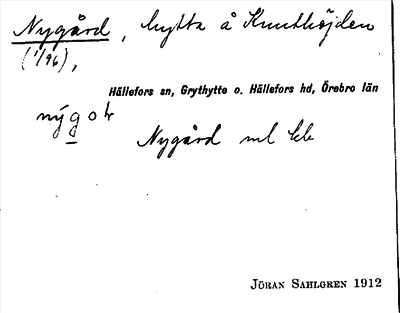 Nygård, hytta å Knuthöjden
(1/96),
Hällefors sn, Grythytte o. Hällefors hd, Örebro län
nýgoṙ
Nygård ml kb
JÖRAN SAHLGREN 1912